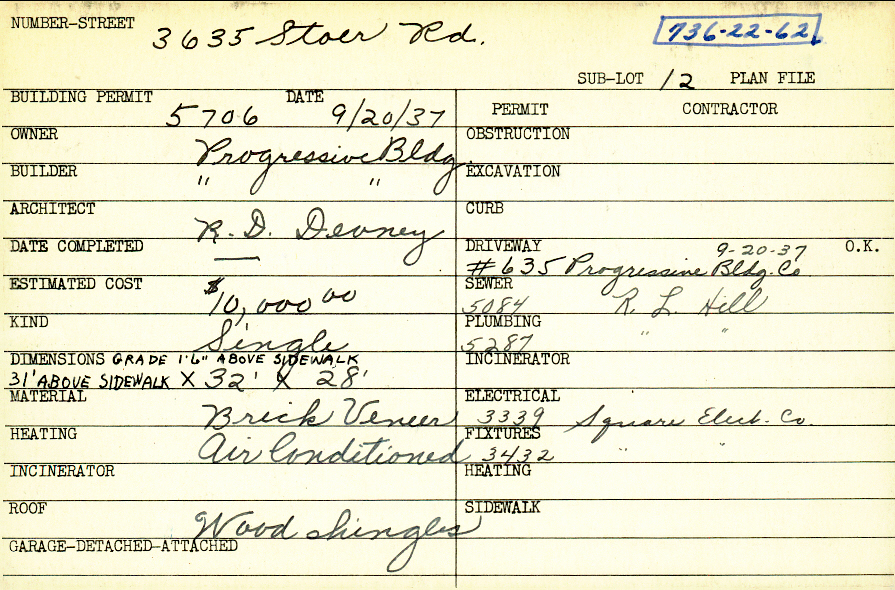 NUMBER-STREET 3635 Stoer Rd. 736-22-62
SUB-LOT 12 PLAN FILE
BUILDING PERMIT 5706 DATE 9/20/37
PERMIT CONTRACTOR
OWNER Progressive Bldg.
OBSTRUCTION
BUILDER " "
EXCAVATION
ARCHITECT R. D. Devney
CURB
DATE COMPLETED —
DRIVEWAY 9-20-37 O.K.
#635 Progressive Bldg. Co
ESTIMATED COST $10,000 00
SEWER 5084 R. L. Hill
KIND Single
PLUMBING 5287 " "
DIMENSIONS GRADE 1'6" ABOVE SIDEWALK
31' ABOVE SIDEWALK X 32' X 28'
INCINERATOR
MATERIAL Brick Veneer
ELECTRICAL 3339 Square Elect. Co.
HEATING Air Conditioned
FIXTURES 3432 " "
INCINERATOR
HEATING
ROOF Wood shingles
SIDEWALK
GARAGE-DETACHED-ATTACHED